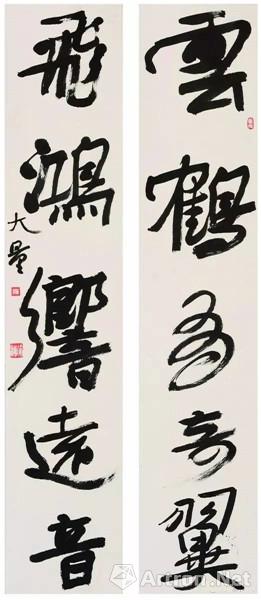 雲鶴有奇翼
飛鴻響遠音
大量
Artron.Net